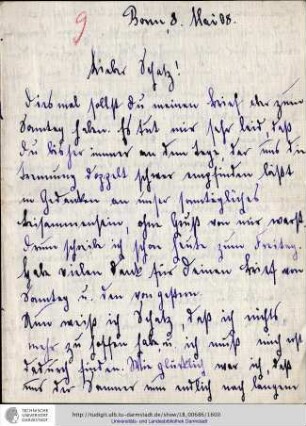 9
Bonn, 8. Mai 08.
Lieber Schatz!
Diesmal sollst Du meinen Brief der zum
Sonntag haben. Es tut mir sehr leid, daß
Du bisher immer an dem Tag, der uns die
Trennung doppelt schwer empfinden läßt
in Gedanken an unser sonntägliches
Beisammensein, ohne Gruß von mir warst.
Drum schreibe ich schon heute zum Freitag.
Habe vielen Dank für Deinen Brief vom
Sonntag u. den von gestern.
Nun weiß ich Schatz, daß ich nichts
mehr zu hoffen habe u. ich muß mich
dadurch finden. Wie glücklich war ich, daß
uns der Sommer nun endlich nach langem
TECHNISCHE
UNIVERSITÄT
DARMSTADT
http://tudigit.ulb.tu-darmstadt.de/show/LB_00686/1600
Universitäts- und Landesbibliothek Darmstadt